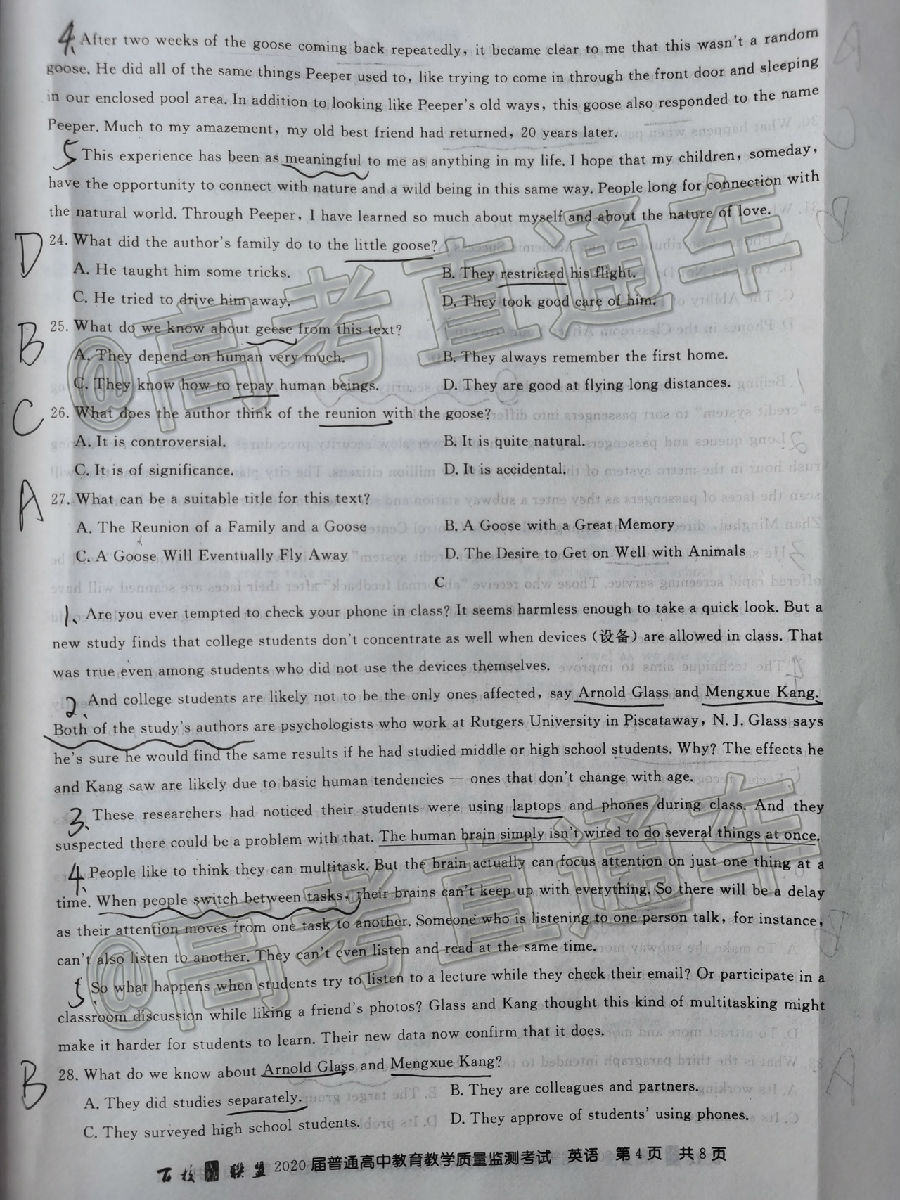 4、After two weeks of the goose coming back repeatedly, it became clear to me that this wasn't a random
goose. He did all of the same things Peeper used to, like trying to come in through the front door and sleeping
in our enclosed pool area. In addition to looking like Peeper's old ways, this goose also responded to the name
Peeper. Much to my amazement, my old best friend had returned, 20 years later.
5、This experience has been as meaningful to me as anything in my life. I hope that my children, someday,
have the opportunity to connect with nature and a wild being in this same way. People long for connection with
the natural world. Through Peeper, I have learned so much about myself and about the nature of love.
D 24. What did the author's family do to the little goose?
A. He taught him some tricks. B. They restricted his flight.
C. He tried to drive him away. D. They took good care of him.
B 25. What do we know about geese from this text?
A. They depend on human very much. B. They always remember the first home.
C. They know how to repay human beings. D. They are good at flying long distances.
C 26. What does the author think of the reunion with the goose?
A. It is controversial. B. It is quite natural.
C. It is of significance. D. It is accidental.
A 27. What can be a suitable title for this text?
A. The Reunion of a Family and a Goose B. A Goose with a Great Memory
C. A Goose Will Eventually Fly Away D. The Desire to Get on Well with Animals
C
1、Are you ever tempted to check your phone in class? It seems harmless enough to take a quick look. But a
new study finds that college students don't concentrate as well when devices (设备) are allowed in class. That
was true even among students who did not use the devices themselves.
2、And college students are likely not to be the only ones affected, say Arnold Glass and Mengxue Kang.
Both of the study's authors are psychologists who work at Rutgers University in Piscataway, N. J. Glass says
he's sure he would find the same results if he had studied middle or high school students. Why? The effects he
and Kang saw are likely due to basic human tendencies — ones that don't change with age.
3、These researchers had noticed their students were using laptops and phones during class. And they
suspected there could be a problem with that. The human brain simply isn't wired to do several things at once.
4、People like to think they can multitask. But the brain actually can focus attention on just one thing at a
time. When people switch between tasks, their brains can't keep up with everything. So there will be a delay
as their attention moves from one task to another. Someone who is listening to one person talk, for instance,
can't also listen to another. They can't even listen and read at the same time.
5、So what happens when students try to listen to a lecture while they check their email? Or participate in a
classroom discussion while liking a friend's photos? Glass and Kang thought this kind of multitasking might
make it harder for students to learn. Their new data now confirm that it does.
B 28. What do we know about Arnold Glass and Mengxue Kang?
A. They did studies separately. B. They are colleagues and partners.
C. They surveyed high school students. D. They approve of students' using phones.
百校联盟 2020届普通高中教育教学质量监测考试 英语 第4页 共8页
@高考直通车
@高考直通车